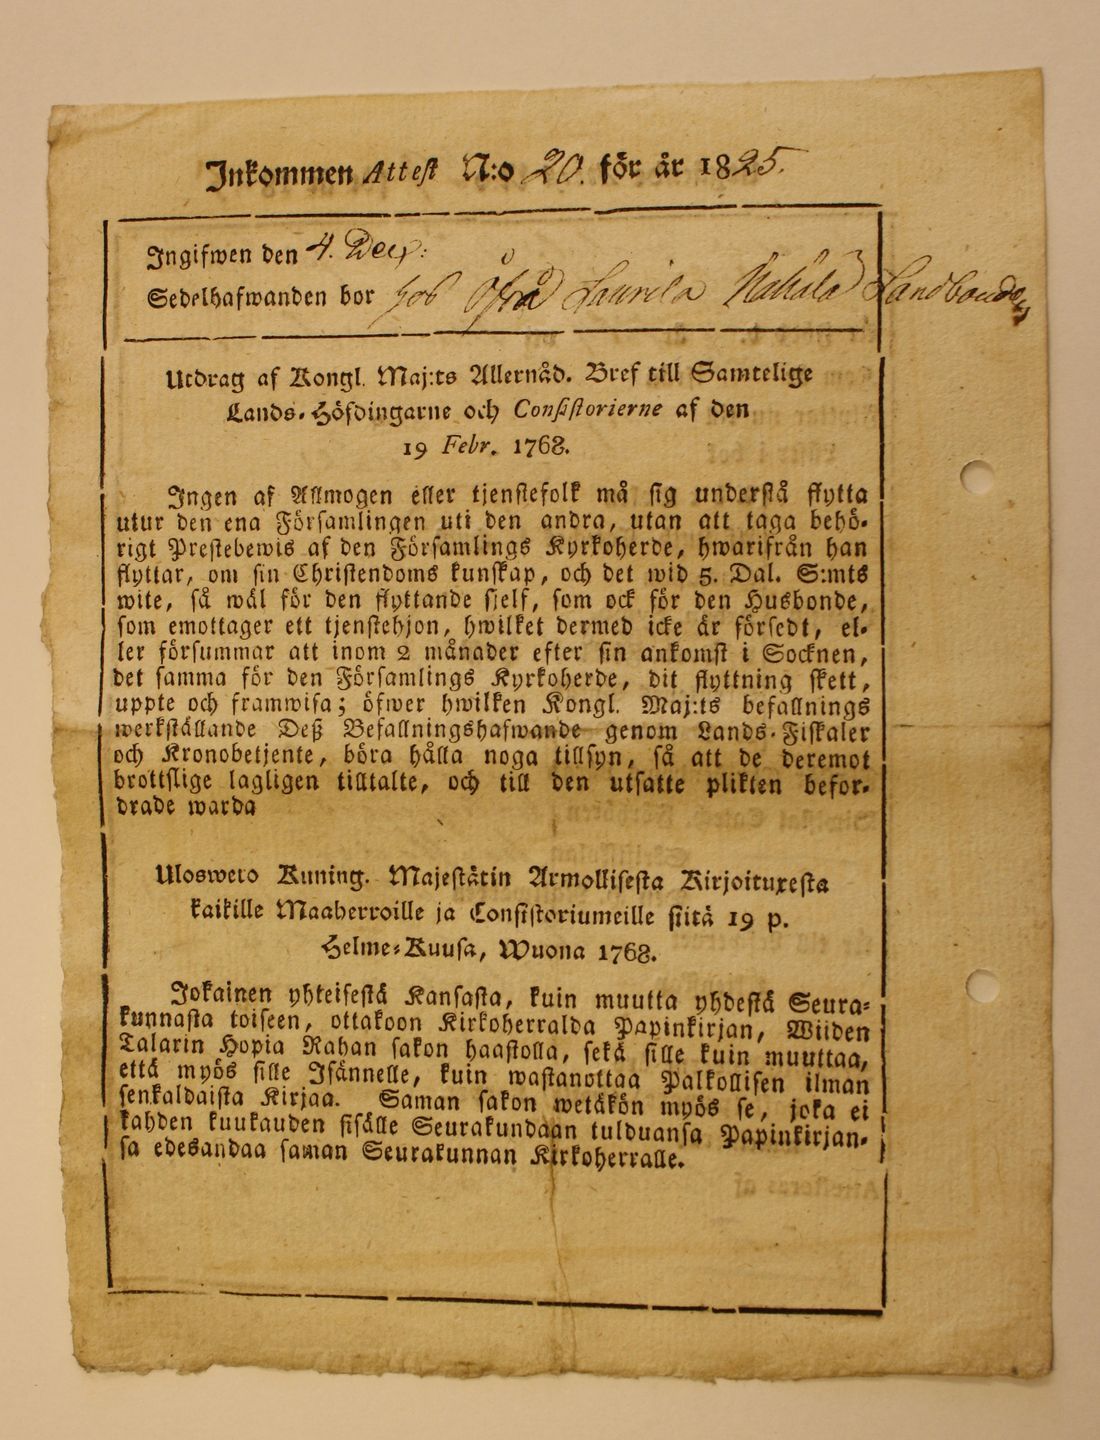 Inkommen Attest N:o 20. för år 1825.
Ingifwen den 4. Dec:
Sedelhafwanden bor hos Öfra Laurila Landbonde
Utdrag af Kongl. Maj:ts Allernåd. Bref till Samtelige
Lands-Höfdingarne och Consistorierne af den
19 Febr. 1768.
Ingen af Allmogen eller tjenstefolk må sig understå flytta
utur den ena Församlingen uti den andra, utan att taga behö-
rigt Prestebewis af den Församlings Kyrkoherde, hwarifrån han
flyttar, om sin Christendoms kunskap, och det wid 5. Dal. S:mts
wite, så wäl för den flyttande sjelf, som ock för den Husbonde,
som emottager ett tjenstehjon, hwilket dermed icke är försedt, el-
ler försummar att inom 2 månader efter sin ankomst i Socknen,
det samma för den Församlings Kyrkoherde, dit flyttning skett,
uppte och framwisa; öfwer hwilken Kongl. Maj:ts befallnings
werkställande Deß Befallningshafwande genom Lands-Fiskaler
och Kronobetjente, böra hålla noga tillsyn, så att de deremot
brottslige lagligen tilltalte, och till den utsatte plikten befor-
drade warda
Uloswero Kuning. Majestätin Armollisesta Kirjoituxesta
kaikille Maaherroille ja Consistoriumeille siitä 19 p.
Helme-Kuusa, Wuona 1768.
Jokainen yhteisestä Kansasta, kuin muutta yhdestä Seura-
kunnasta toiseen, ottakoon Kirkoherralda Papinkirjan, Wiiden
Talarin Hopia Rahan sakon haastolla, sekä sille kuin muuttaa,
että myös sille Isännelle, kuin wastanottaa Palkollisen ilman
senkaldaista Kirjaa. Saman sakon wetäkön myös se, joka ei
kahden kuukauden sisälle Seurakundaan tulduansa Papinkirjan-
sa edesandaa saman Seurakunnan Kirkoherralle.